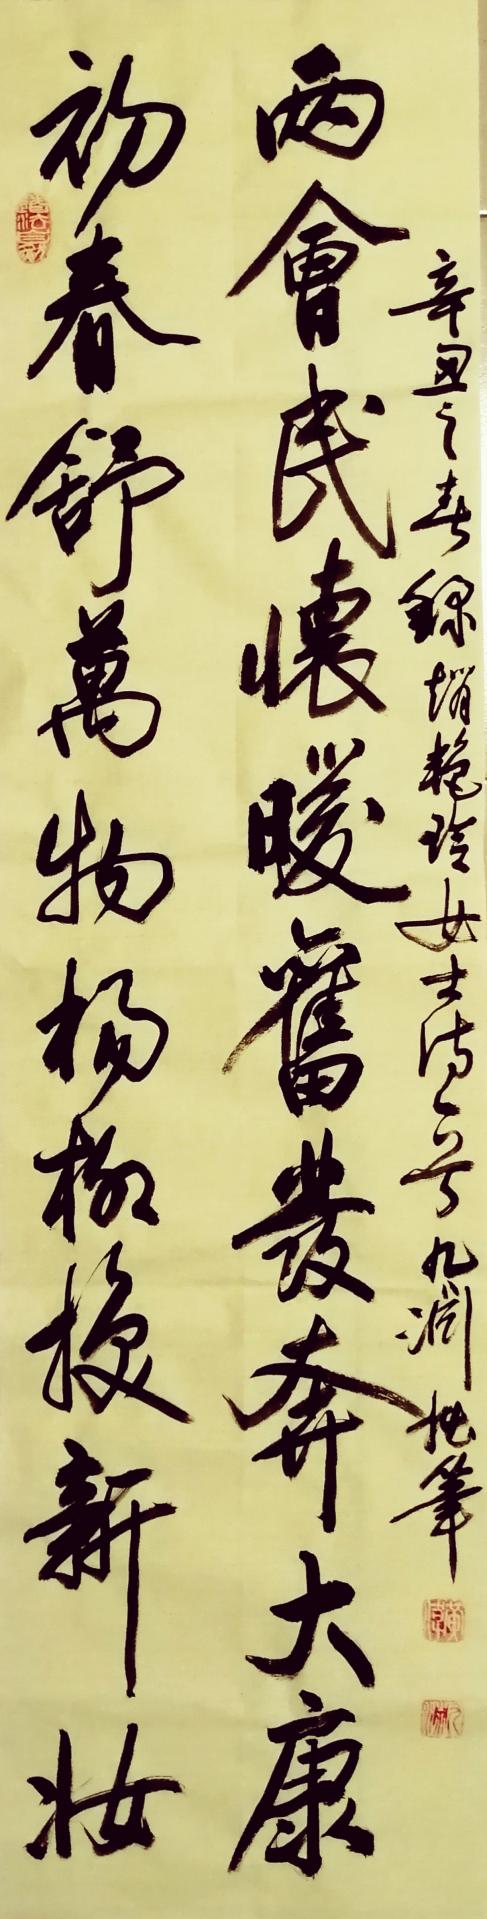 初春舒萬物楊柳換新妝
两會民懷暖奮發奔大康
辛丑之春錄艷玲女士詩一首九淵拙筆